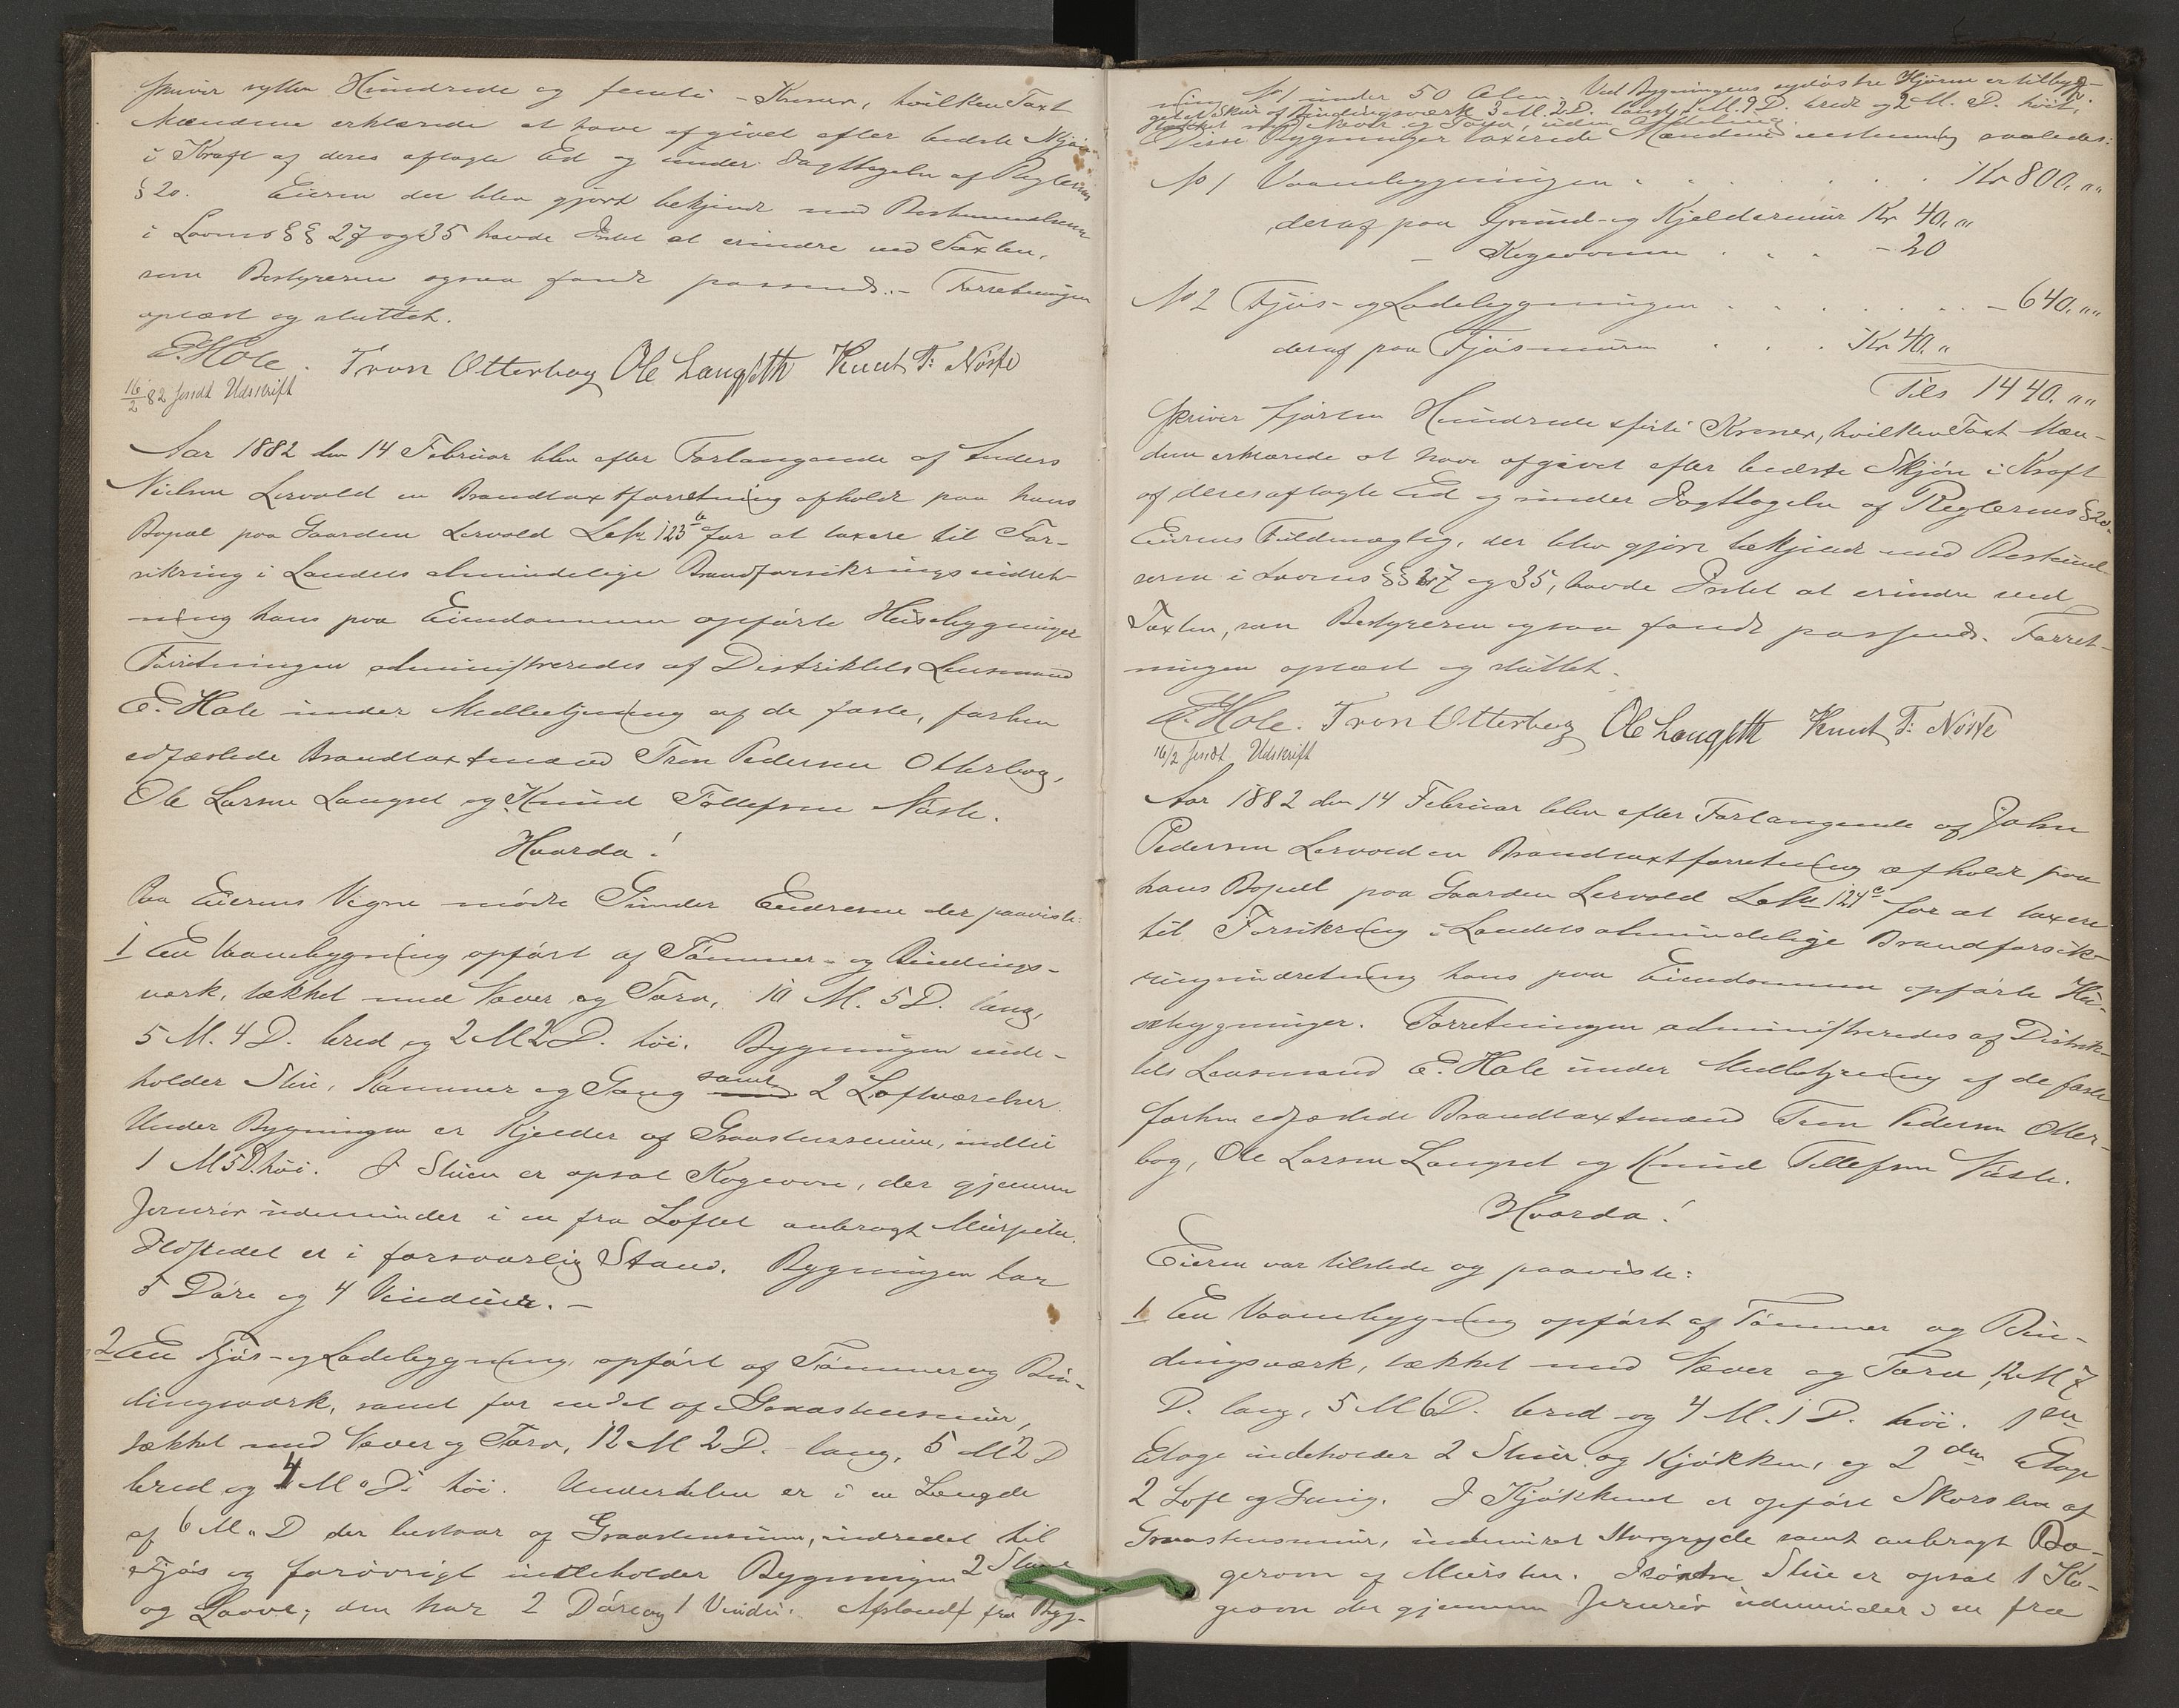 skriver sytten Hundrede og femti - Kroner, hvilken Taxt
Mændene erklærede at have afgivet efter bedste Skjøn
i Kraft af deres aflagte Ed og under Iagttagelse af Reglernes
§ 20. Eieren der blev gjort bekjendt med Bestemmelserne
i Lovens §§ 27 og 35 havde Intet at erindre ved Taxten,
som Bestyreren ogsaa fandt passende. - Forretningen
oplæst og sluttet.
E. Hole. Tron Otterbog Ole Langseth Knut T: Nøste
16/2 82 sendt Udskrift
Aar 1882 den 14 Februar blev efter Forlangende af Anders
Nielsen Lervold en Brandtaxtforretning afholdt paa hans
Bopæl paa Gaarden Lervold Lbn 123 b for at taxere til For-
sikring i Landets almindelige Brandforsikringsindret-
ning hans paa Eiendommen opførte Husebygninger
Forretningen administreredes af Distriktets Lensmand
E. Hole under Medbetjening af de faste, forhen
edfæstede Brandtaxtmænd Tron Pedersen Otterbog,
Ole Larsen Langset og Knud Tollefsen Nøste.
Hvorda!
Paa Eierens Vegne mødte Gunder Endresen der paaviste:
1 En Vaanebygning opført af Tømmer- og Bindings-
verk, tækket med Næver og Torv, 10 M. 5 D. lang,
5 M. 4 D. bred og 2 M 2 D. høi. Bygningen inde-
holder Stue, Kammer og Gang samt 2 Loftværelser.
Under Bygningen er Kjelder af Graastensmur, indtil
1 M 5 D. høi. I Stuen er opsat Kogeovn, der gjennem
Jernrør udmunder i en fra Loftet anbragt Murpibe.
Ildstedet er i forsvarlig Stand. Bygningen har
5 Døre og 4 Vinduer. -
2 En Fjøs- og Ladebygning, opført af Tømmer og Bin-
dingsverk, samt for en Del af Graastensmur,
tækket med Næver og Torv, 12 M 2 D. lang, 5 M 2 D
bred og 4 M " D: høi. Underdelen er i en Længde
af 6 M " D der bestaar af Graastensmur, indredet til
Fjøs og forøvrigt indeholder Bygningen 2
og Laave; den har 2 Døre og 1 Vindu. Afstand fra Byg-
ning No 1 under 50 Alen. Ved Bygningens sydøstre Hjørne er tilbyg-
get et Skur af Bindingsværk 3 M. 2 D. langt, 1 M. 9 D. bredt og 2 M. " D. høit,
tækket med Næver og Torv, uden Afdeling.
Disse Bygninger taxerede Mændene eenstemmig saaledes:
No 1 Vaanebygningen . . . . . . Kr 800. ""
deraf paa Grund- og Kjeldermur Kr 40. "
- Kogeovnen . . . - 20
No 2 Fjøs- og Ladebygningen . . . . . . - 640. ""
deraf paa Fjøsmuren . . . Kr 40. "
Tils 1440. ""
skriver fjorten Hundrede firti Kroner, hvilken Taxt Mæn-
dene erklærede at have afgivet efter bedste Skjøn i Kraft
af deres aflagte Ed og under Iagttagelse af Reglernes § 20.
Eierens Fuldmægtig, der blev gjort bekjendt med Bestem-
serne i Lovens §§ 27 og 35, havde Intet at erindre ved
Taxten, som Bestyreren ogsaa fandt passende. Forret-
ningen oplæst og sluttet.
E. Hole. Tron Otterbog Ole Langseth Knut T: Nøste
16/2 sendt Udskrift
Aar 1882 den 14 Februar blev efter Forlangende af John
Pedersen Lervold en Brandtaxtforretning afholdt paa
hans Bopæl paa Gaarden Lervold Lbn 124 c for at taxere
til Forsikring i Landets almindelige Brandforsik-
ringsindretning hans paa Eiendommen opførte Hu-
sebygninger. Forretningen administreredes af Distrik-
tets Lensmand E. Hole under Medbetjening af de faste
forhen edfæstede Brandtaxtmænd Tron Pedersen Otter-
bog, Ole Larsen Langset og Knud Tollefsen Nøste.
Hvorda!
Eieren var tilstede og paaviste:
1 En Vaanebygning opført af Tømmer og Bin-
dingsværk, tækket med Næver og Torv, 12 M 7
D. lang, 5 M 6 D. bred og 4 M. 1 D. høi. 1ste
Etage indeholder 2 Stuer og Kjøkken, og 2 den Etage
2 Loft og Gang. I Kjøkkenet er opført Skorsten af
Graastensmur, indmuret Storgryde samt anbragt Ba-
gerovn af Mursten. I søndre Stue er opsat 1 Ko-
geovn der gjennem Jernrør udmunder i en fra